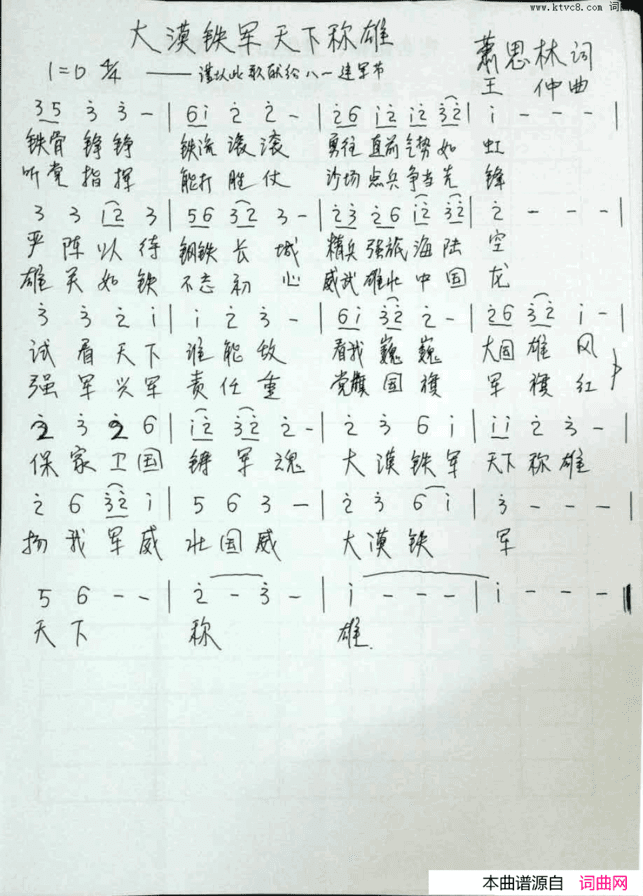 www.ktvc8.com 词曲网
大漠铁军天下称雄
萧思林词
1=D 4/4 ——谨以此歌献给八一建军节
王 仲曲
3 5 3 3 - | 6 i 2 2 - | 2 6 i 2 i 2 3 2 | i - - -
铁骨铮铮 铁流滚滚 勇往直前气势如 虹
听党指挥 能打胜仗 沙场点兵争当先 锋
3 3 i 2 3 | 5 6 3 2 3 - | 2 3 2 6 i 2 3 2 | 2 - - -
严阵以待 钢铁长城 精兵强旅海陆 空
雄关如铁 不忘初心 威武雄壮中国 龙
3 3 2 i | i 2 3 - | 6 i 3 2 2 - | 2 6 3 2 i -
试看天下 谁能敌 看我巍巍 大国雄风
强军兴军 责任重 党旗国旗 军旗红
2 3 2 6 | i 2 3 2 2 - | 2 3 6 i | i i 2 3 -
保家卫国 铸军魂 大漠铁军 天下称雄
2 6 3 2 i | 5 6 3 - | 2 3 6 i | 3 - - -
扬我军威 壮国威 大漠铁 军
5 6 - - | 2 - 3 - | i - - - | i - - -
天下 称 雄.
本曲谱源自 词曲网